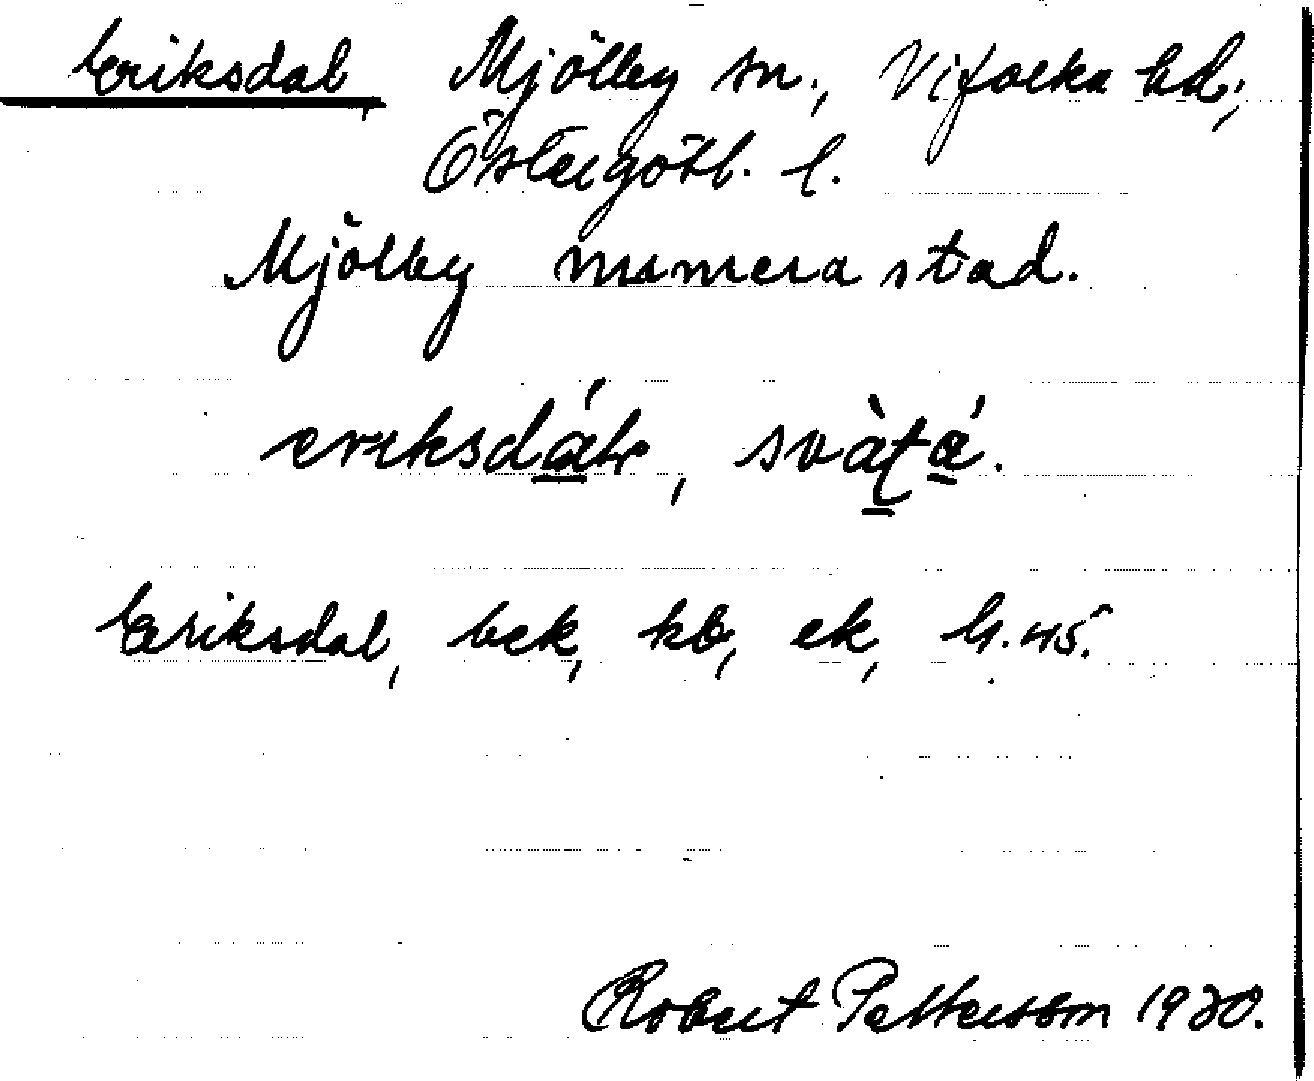 Eriksdal, Mjölby sn., Vifolka hd.,
Östergötl. l.
Mjölby numera stad.
eriksdál, svàtá.
Eriksdal, bek, kb, ek, G. 45.
Robert Pettersson 1930.